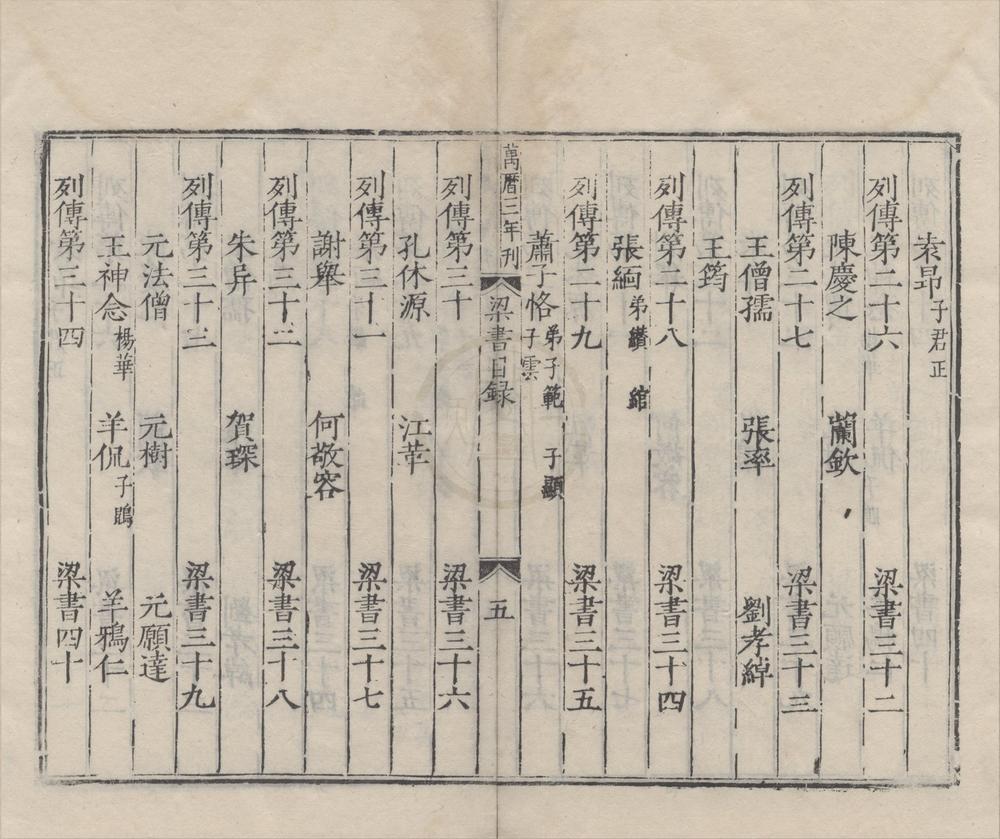 袁昂子君正
列傳第二十六 梁書三十二
陳慶之 蘭欽
列傳第二十七 梁書三十三
王僧孺 張率 劉孝綽
王筠
列傳第二十八 梁書三十四
張緬弟纘 綰
列傳第二十九 梁書三十五
蕭子恪弟子範 子顯 子雲
萬曆三年刊 梁書目録 五
列傳第三十 梁書三十六
孔休源 江革
列傳第三十一 梁書三十七
謝舉 何敬容
列傳第三十二 梁書三十八
朱异 賀琛
列傳第三十三 梁書三十九
元法僧 元樹 元願達
王神念楊華 羊侃子鵾 羊鴉仁
列傳第三十四 梁書四十